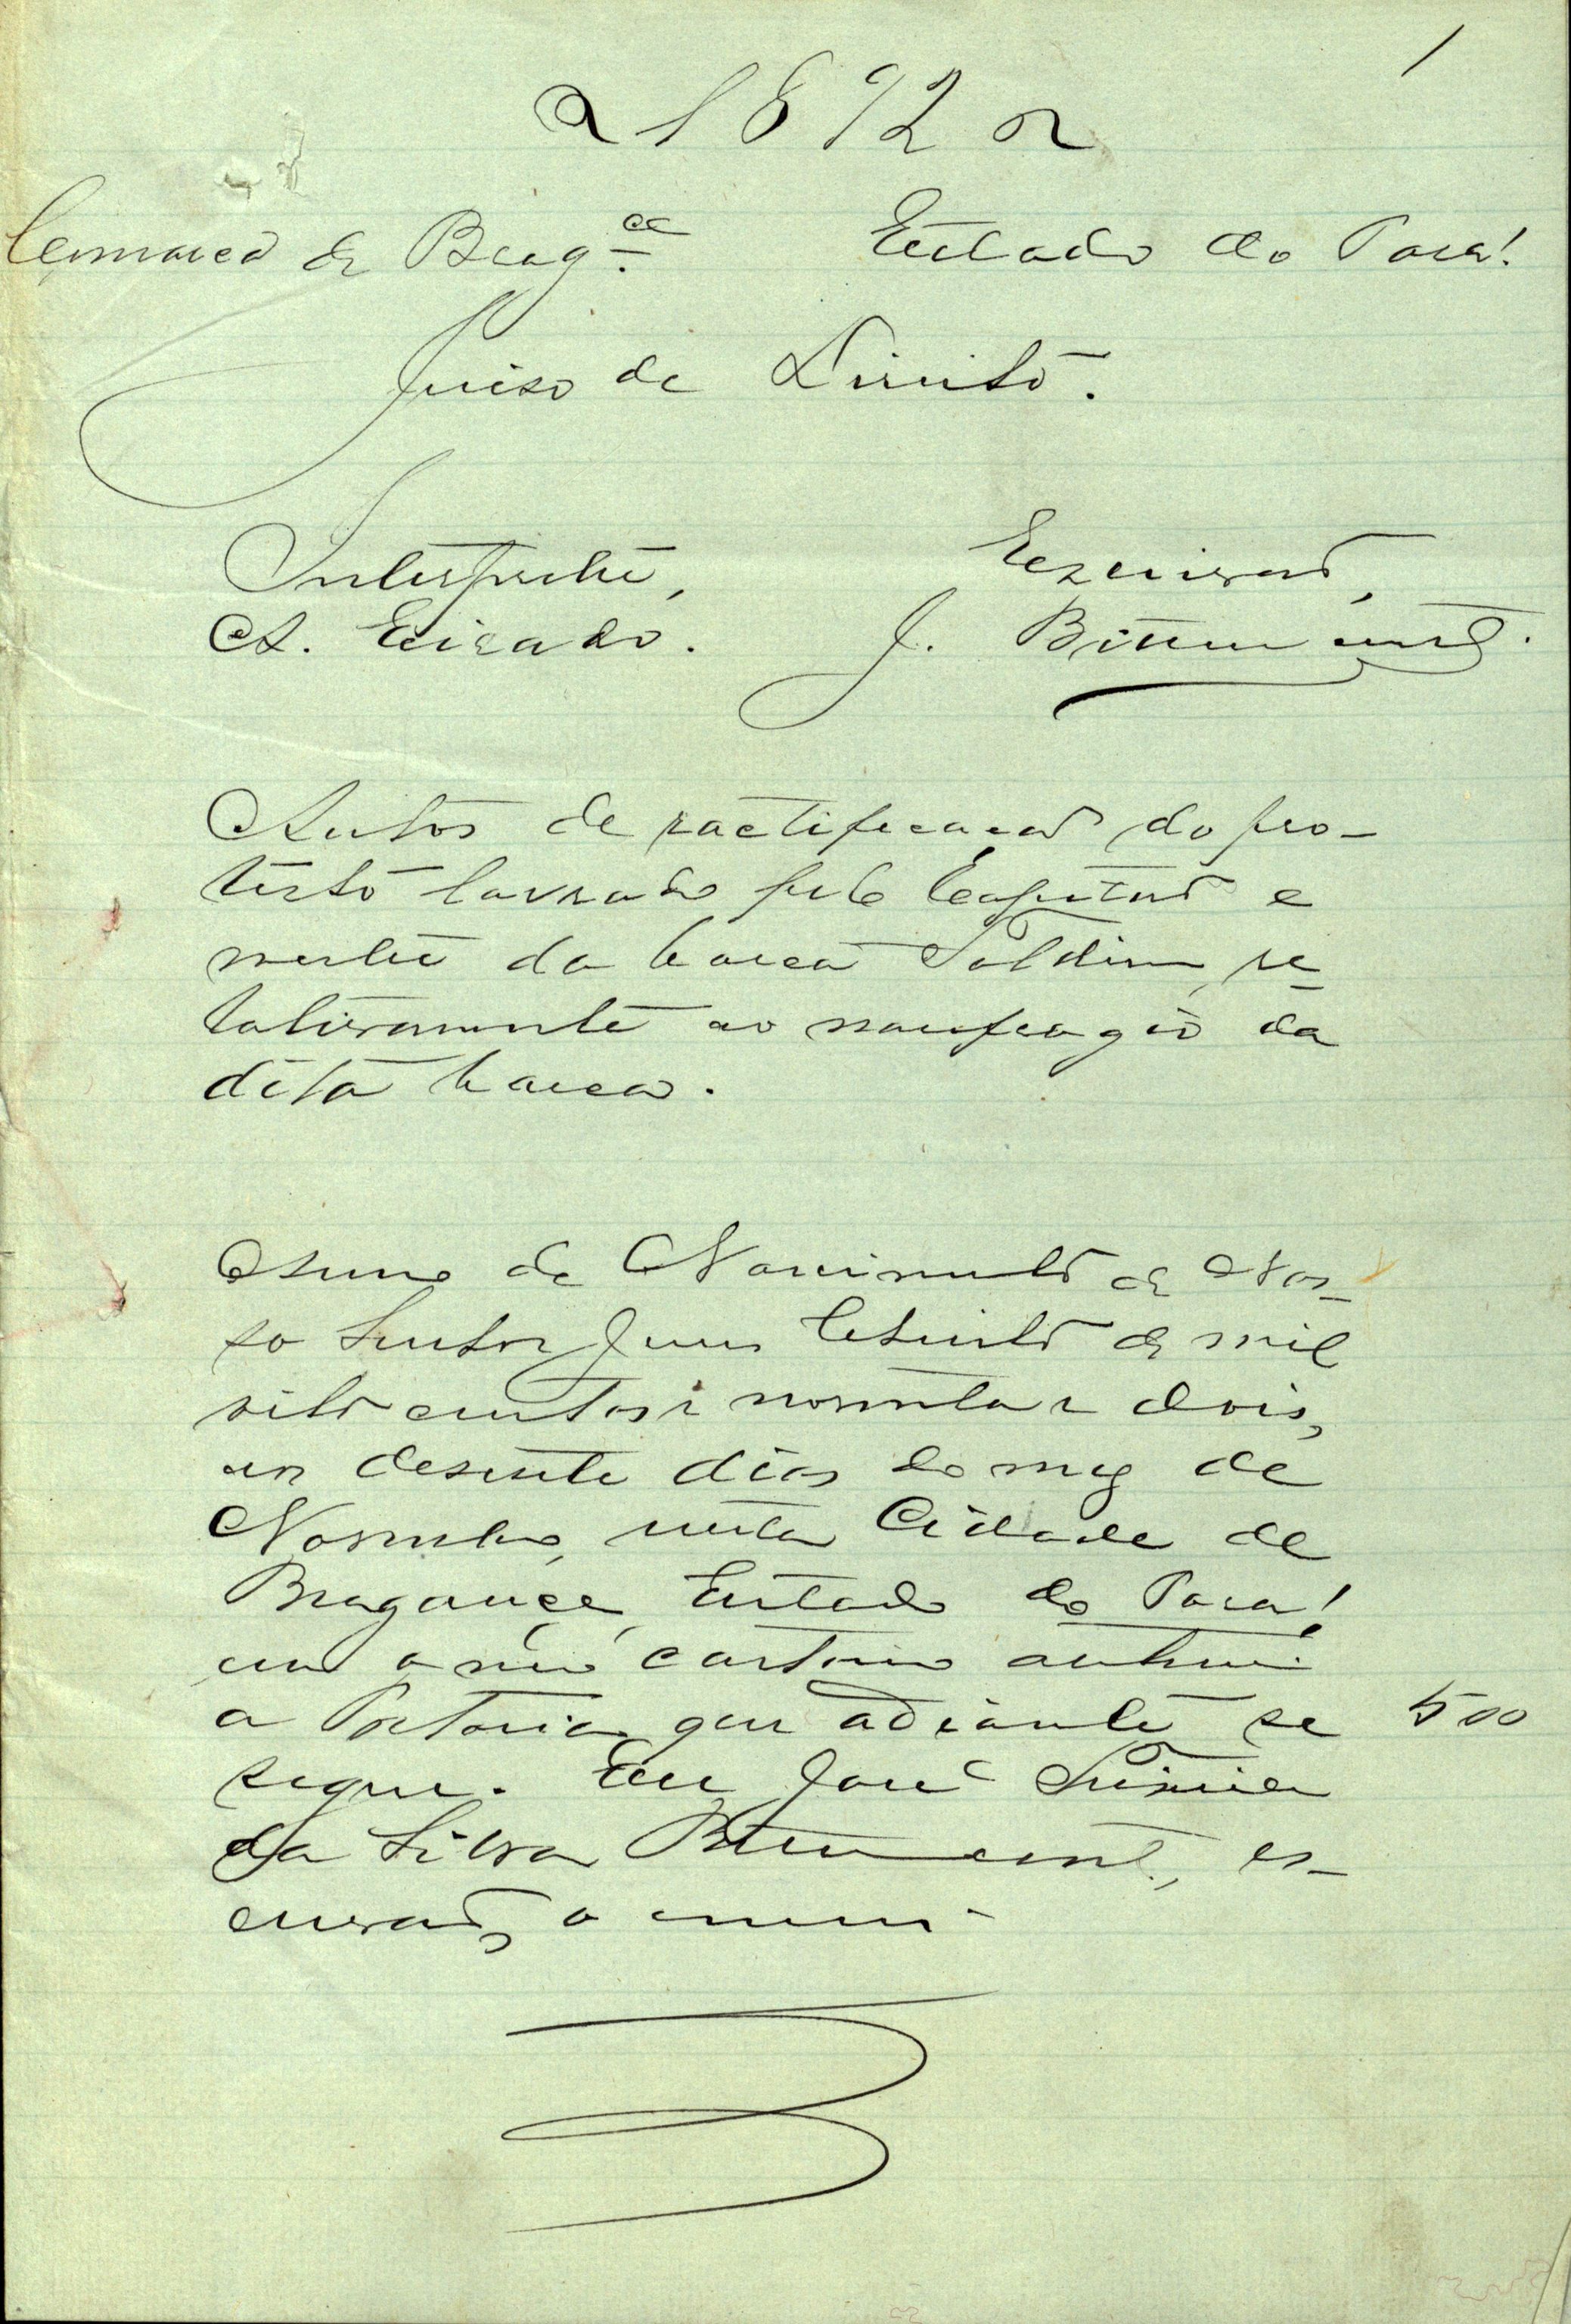 1
1892
Commarca de Brag.ça Estado do Pará
Juiso de Direito.
Interprete, Escrivão,
A. Eirado. J. Bittencourt.
Autos de ractificação do pro-
testo lavrado pelo Capitão e
mestre da barca Soldim, re-
lativamente ao naufragio da
dita barca.
Anno de Nascimento de Nos-
so Senhor Jesus Christo de mil
oito centos e noventa e dois,
aos desesete dias do mez de
Novembro, nesta Cidade de
Bragança, Estado do Pará,
em o meu cartorio autuei
a Portaria que adiante se 500
segue. Eu José
da Silva Bittencourt, es-
crivão, o escrevi